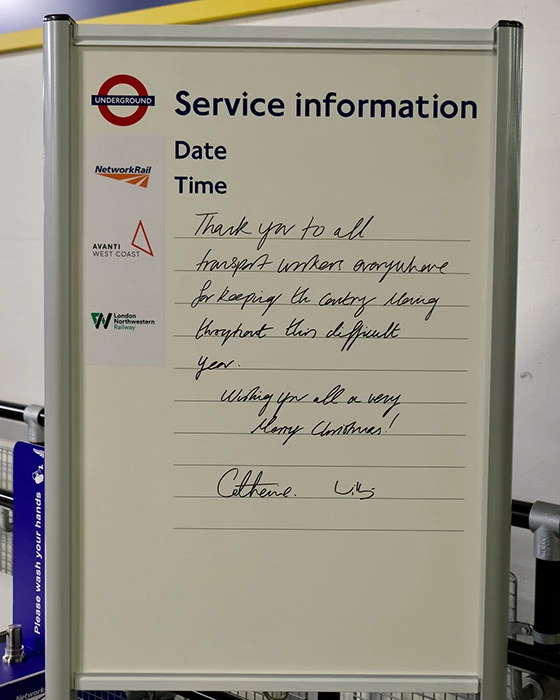 UNDERGROUND
Service information
Date
Time
NetworkRail
AVANTI
WEST COAST
London
Northwestern
Railway
Thank you to all
transport workers everywhere
for keeping the country moving
throughout this difficult
year.
Wishing you all a very
Merry Christmas!
Catherine.
Please wash your hands
Network